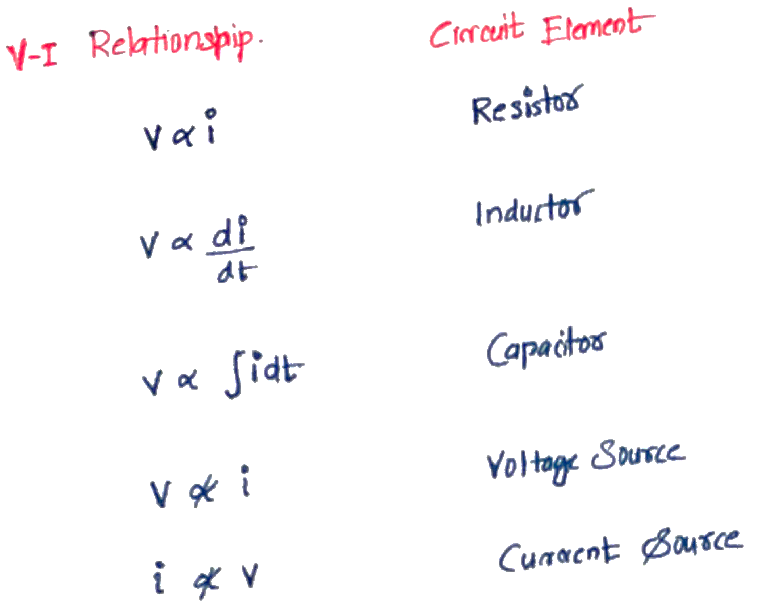 V-I Relationship. Circuit Element
V ∝ i Resistor
V ∝ di/dt Inductor
V ∝ ∫idt Capacitor
V ∝̸ i Voltage Source
i ∝̸ V Current Source